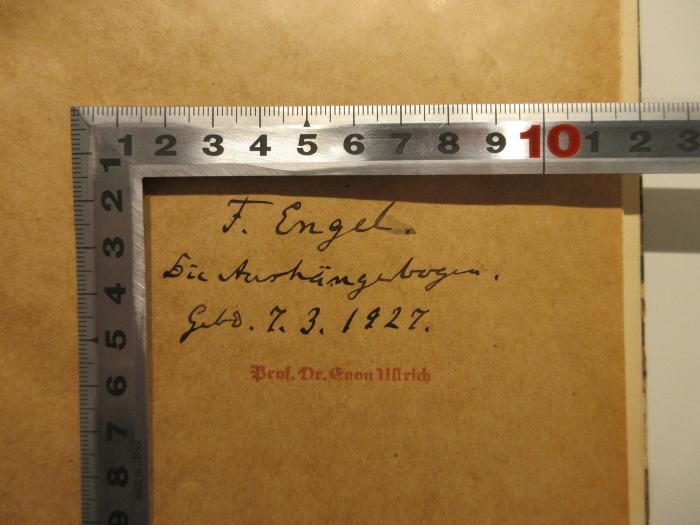 1 2 3 4 5 6 7 8 9 10 1 2 3
1 2 3 4 5 6 7 8 9
MADE IN JAPAN
F. Engel.
Die Aushängebogen.
Gebd. 7. 3. 1927.
Prof. Dr. Egon Ullrich